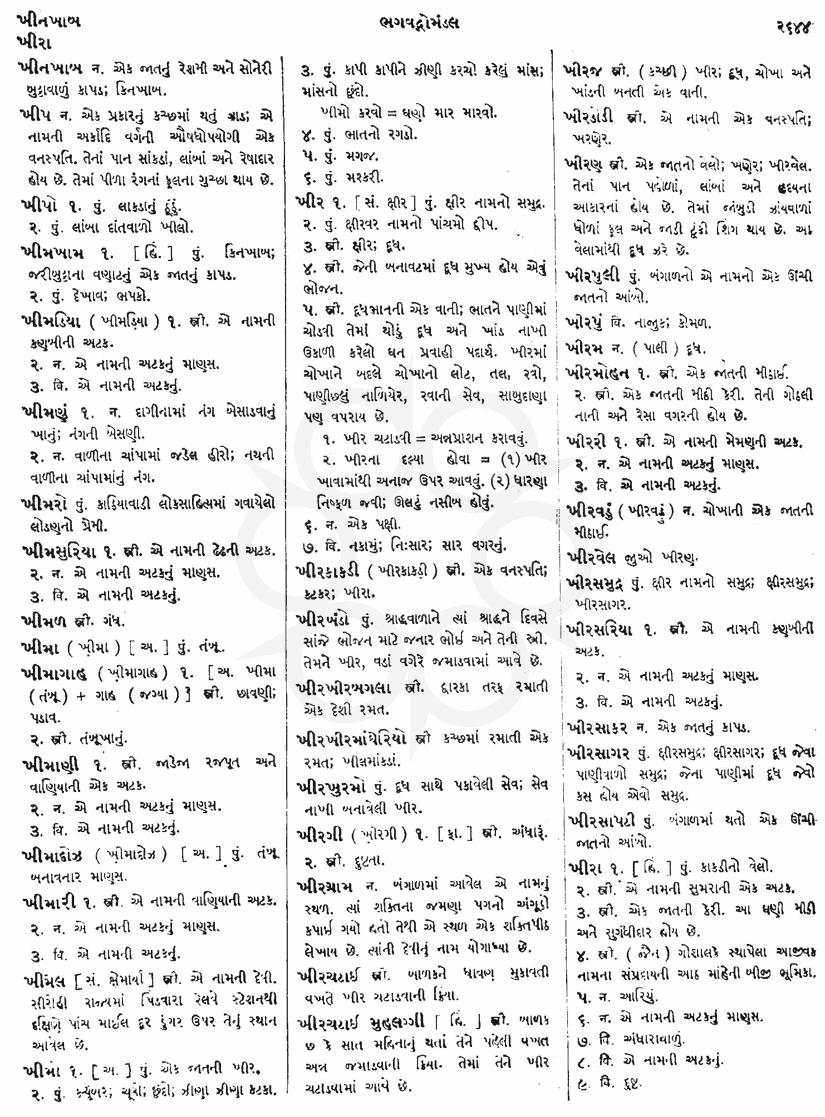 ખીનખાબ
ખીરા
ભગવદ્ગોમંડલ
૨૬૪૪
ખીનખાબ ન. એક જાતનું રેશમી અને સોનેરી
બુટ્ટાવાળું કાપડ; કિનખાબ.
ખીપ ન. એક પ્રકારનું કચ્છમાં થતું ઝાડ; એ
નામની અર્કાદિ વર્ગની ઔષધોપયોગી એક
વનસ્પતિ. તેનાં પાન સાંકડાં, લાંબાં અને રેષાદાર
હોય છે. તેમાં પીળા રંગનાં ફૂલના ગુચ્છા થાય છે.
ખીપો ૧. પું. લાકડાનું ઠૂંઠું.
૨. પું. લાંબા દાંતવાળો ખીલો.
ખીમખામ ૧. [ હિં. ] પું. કિનખાબ;
જરીબુટ્ટાના વણાટનું એક જાતનું કાપડ.
૨. પું. દેખાવ; ભપકો.
ખીમડિયા ( ખીમડ઼િયા ) ૧. સ્ત્રી. એ નામની
કણબીની અટક.
૨. ન. એ નામની અટકનું માણસ.
૩. વિ. એ નામની અટકનું.
ખીમણું ૧. ન. દાગીનામાં નંગ બેસાડવાનું
ખાનું; નંગની બેસણી.
૨. ન. વાળીના ચાંપામાં જડેલ હીરો; નથની
વાળીના ચાંપામાંનું નંગ.
ખીમરો પું. કાઠિયાવાડી લોકસાહિત્યમાં ગવાયેલો
લોડણનો પ્રેમી.
ખીમસુરિયા ૧. સ્ત્રી. એ નામની ઢેઢની અટક.
૨. ન. એ નામની અટકનું માણસ.
૩. વિ. એ નામની અટકનું.
ખીમળ સ્ત્રી. ગંધ.
ખીમા ( ખ઼ીમા ) [ અ. ] પું. તંબૂ.
ખીમાગાહ ( ખ઼ીમાગાહ ) ૧. [ અ. ખીમા
( તંબૂ ) + ગાહ ( જગ્યા ) ] સ્ત્રી. છાવણી;
પડાવ.
૨. સ્ત્રી. તંબૂખાનું.
ખીમાણી ૧. સ્ત્રી. જાડેજા રજપૂત અને
વાણિયાની એક અટક.
૨. ન. એ નામની અટકનું માણસ.
૩. વિ. એ નામની અટકનું.
ખીમાદોઝ ( ખ઼ીમાદોઝ ) [ અ. ] પું. તંબૂ
બનાવનાર માણસ.
ખીમારી ૧. સ્ત્રી. એ નામની વાણિયાની અટક.
૨. ન. એ નામની અટકનું માણસ.
૩. વિ. એ નામની અટકનું.
ખીમેલ [ સં. ક્ષેમાર્યા ] સ્ત્રી. એ નામની દેવી.
સીરોહી રાજ્યમાં પિંડવારા રેલવે સ્ટેશનથી
દક્ષિણે પાંચ માઈલ દૂર ડુંગર ઉપર તેનું સ્થાન
આવેલ છે.
ખીમો ૧. [ અ. ] પું. એક જાતની ખીર.
૨. પું. કચૂંબર; ચૂરો; છૂંદો; ઝીણા ઝીણા કટકા.
૩. પું. કાપી કાપીને ઝીણો કરચો કરેલું માંસ;
માંસનો છૂંદો.
ખીમો કરવો = ઘણો માર મારવો.
૪. પું. ભાતનો રગડો.
૫. પું. મગજ.
૬. પું. મસ્કરી.
ખીર ૧. [ સં. ક્ષીર ] પું. ક્ષીર નામનો સમુદ્ર.
૨. પું. ક્ષીરવર નામનો પાંચમો દ્વીપ.
૩. સ્ત્રી. ક્ષીર; દૂધ.
૪. સ્ત્રી. જેની બનાવટમાં દૂધ મુખ્ય હોય એવું
ભોજન.
૫. સ્ત્રી. દૂધભાતની એક વાની; ભાતને પાણીમાં
ચોડવી તેમાં થોડું દૂધ અને ખાંડ નાખી
ઉકાળી કરેલો ઘન પ્રવાહી પદાર્થ. ખીરમાં
ચોખાને બદલે ચોખાનો લોટ, તલ, રવો,
પાણીછલું નાળિયેર, રવાની સેવ, સાબુદાણા
પણ વપરાય છે.
૧. ખીર ચટાડવી = અન્નપ્રાશન કરાવવું.
૨. ખીરના દવ્યા હોવા = (૧) ખીર
ખાવામાંથી અનાજ ઉપર આવવું. (૨) ધારણા
નિષ્ફળ જવી; ઊલટું નસીબ હોવું.
૬. ન. એક પક્ષી.
૭. વિ. નકામું; નિઃસાર; સાર વગરનું.
ખીરકાકડી ( ખીરકાકડ઼ી ) સ્ત્રી. એક વનસ્પતિ;
કટકર; ખીરા.
ખીરખંડો પું. શ્રાદ્ધવાળાને ત્યાં શ્રાદ્ધને દિવસે
સાંજે ભોજન માટે જનાર ભોઈ અને તેની સ્ત્રી.
તેમને ખીર, વડાં વગેરે જમાડવામાં આવે છે.
ખીરખીરબગલા સ્ત્રી. દ્વારકા તરફ રમાતી
એક દેશી રમત.
ખીરખીરમાંઘેરિયો સ્ત્રી કચ્છમાં રમાતી એક
રમત; ખીલમાંકડાં.
ખીરખુરમો પું. દૂધ સાથે પકાવેલી સેવ; સેવ
નાખી બનાવેલી ખીર.
ખીરગી ( ખ઼ીરગી ) ૧. [ ફા. ] સ્ત્રી. અંધારું.
૨. સ્ત્રી. દુષ્ટતા.
ખીરગ્રામ ન. બંગાળમાં આવેલ એ નામનું
સ્થળ. ત્યાં શક્તિના જમણા પગનો અંગૂઠો
કપાઈ ગયો હતો તેથી એ સ્થળ એક શક્તિપીઠ
લેખાય છે. ત્યાંની દેવીનું નામ યોગાધ્યા છે.
ખીરચટાઈ સ્ત્રી. બાળકને ધાવણ મુકાવતી
વખતે ખીર ચટાડવાની ક્રિયા.
ખીરચટાઈ મુહલગ્ગી [ હિં. ] સ્ત્રી. બાળક
૭ કે સાત મહિનાનું થતાં તેને પહેલી વખત
અન્ન જમાડવાની ક્રિયા. તેમાં તેને ખીર
ચટાડવામાં આવે છે.
ખીરજ સ્ત્રી. ( કચ્છી ) ખીર; દૂધ, ચોખા અને
ખાંડની બનતી એક વાની.
ખીરડોડી સ્ત્રી. એ નામની એક વનસ્પતિ;
ખરણેર.
ખીરણ સ્ત્રી. એક જાતનો વેલો; ખણેર; ખીરવેલ.
તેનાં પાન પહોળાં, લાંબાં અને હૃદયના
આકારનાં હોય છે. તેમાં જાંબુડી ઝાંયવાળાં
ધોળાં ફૂલ અને જાડી ટૂંકી શિંગ થાય છે. આ
વેલામાંથી દૂધ ઝરે છે.
ખીરપુલી પું. બંગાળનો એ નામનો એક ઊંચી
જાતનો આંબો.
ખીરપું વિ. નાજુક; કોમળ.
ખીરમ ન. ( પાલી ) દૂધ.
ખીરમોહન ૧. સ્ત્રી. એક જાતની મીઠાઈ.
૨. સ્ત્રી. એક જાતની મીઠી કેરી. તેની ગોઠલી
નાની અને રેસા વગરની હોય છે.
ખીરરી ૧. સ્ત્રી. એ નામની મેમણની અટક.
૨. ન. એ નામની અટકનું માણસ.
૩. વિ. એ નામની અટકનું.
ખીરવડું ( ખીરવડ઼ું ) ન. ચોખાની એક જાતની
મીઠાઈ.
ખીરવેલ જુઓ ખીરણ.
ખીરસમુદ્ર પું. ક્ષીર નામનો સમુદ્ર; ક્ષીરસમુદ્ર;
ખીરસાગર.
ખીરસરિયા ૧. સ્ત્રી. એ નામની કણબીની
અટક.
૨. ન. એ નામની અટકનું માણસ.
૩. વિ. એ નામની અટકનું.
ખીરસાકર ન. એક જાતનું કાપડ.
ખીરસાગર પું. ક્ષીરસમુદ્ર; ક્ષીરસાગર; દૂધ જેવા
પાણીવાળો સમુદ્ર; જેના પાણીમાં દૂધ જેવો
કસ હોય એવો સમુદ્ર.
ખીરસાપટી પું. બંગાળમાં થતો એક ઊંચી
જાતનો આંબો.
ખીરા ૧. [ હિં. ] પું. કાકડીનો વેલો.
૨. સ્ત્રી. એ નામની સુમરાની એક અટક.
૩. સ્ત્રી. એક જાતની કેરી. આ ઘણી મીઠી
અને સુગંધીદાર હોય છે.
૪. સ્ત્રી. ( જૈન ) ગોશાલકે સ્થાપેલા આજીવક
નામના સંપ્રદાયની આઠ માંહેની બીજી ભૂમિકા.
૫. ન. આરિયું.
૬. ન. એ નામની અટકનું માણસ.
૭. વિ. અંધારાવાળું.
૮. વિ. એ નામની અટકનું.
૯. વિ. દુષ્ટ.